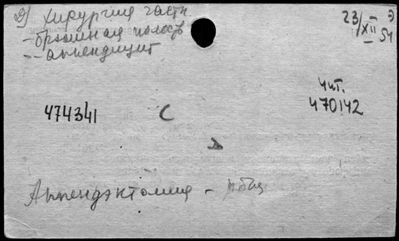 д) хирургия части
- брюшная полость
- - аппендицит
23/XII 54
Э
чит.
470142
474341
С
Аппендэктомия -